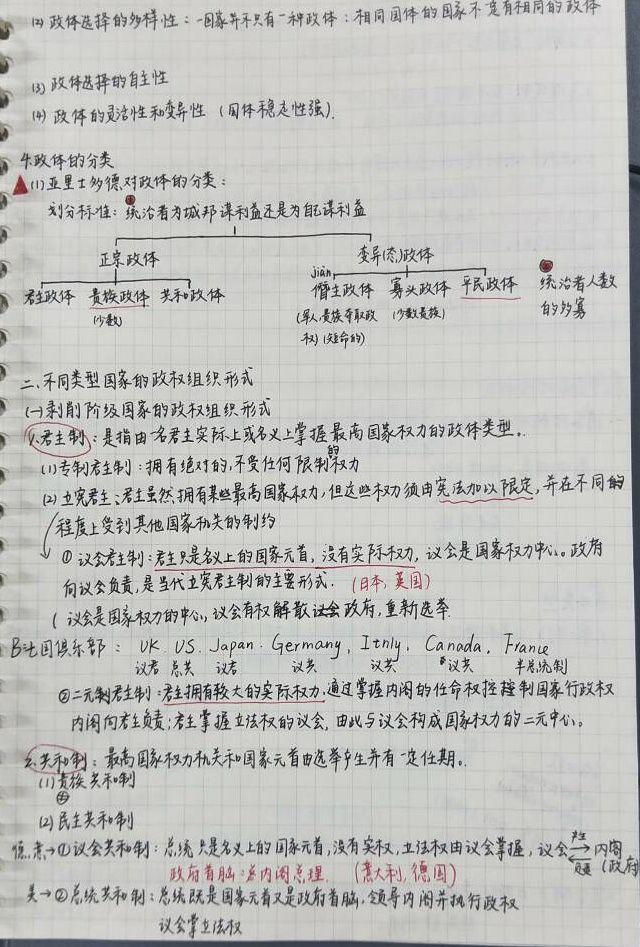 (2) 政体选择的多样性：一国家并不只有一种政体；相同国体的国家不一定有相同的政体
(3) 政体选择的自主性
(4) 政体的灵活性和变异性 (国体稳定性强).
4.政体的分类
(1)亚里士多德对政体的分类：
划分标准：①统治者为城邦谋利益还是为自己谋利益
正宗政体 变异(态)政体
君主政体 贵族政体 共和政体 jiàn 僭主政体 寡头政体 平民政体 ②统治者人数
(少数) (军人、贵族夺取政 (少数贵族) 的多寡
权) (短命的)
二、不同类型国家的政权组织形式
(一)剥削阶级国家的政权组织形式
1、君主制：是指由一名君主实际上或名义上掌握最高国家权力的政体类型。
(1)专制君主制：拥有绝对的,不受任何限制的权力
(2)立宪君主：君主虽然拥有某些最高国家权力,但这些权力须由宪法加以限定,并在不同的
程度上受到其他国家机关的制约
①议会君主制：君主只是名义上的国家元首,没有实际权力,议会是国家权力中心。政府
向议会负责,是当代立宪君主制的主要形式. (日本,英国)
(议会是国家权力的中心,议会有权解散议会政府,重新选举.
法国俱乐部： UK. US. Japan. Germany, Itnly, Canada, France
议君 总共 议君 议共 议共 议共 半总统制
②二元制君主制：君主拥有较大的实际权力,通过掌握内阁的任命权控制国家行政权
内阁向君主负责；君主掌握立法权的议会,由此与议会构成国家权力的二元中心。
2、共和制：最高国家权力机关和国家元首由选举产生并有一定任期。
(1)贵族共和制
(2)民主共和制
德、意→①议会共和制：总统只是名义上的国家元首,没有实权,立法权由议会掌握,议会 产生 负责 内阁(政府
政府首脑：总内阁总理 (意大利,德国)
美→②总统共和制：总统既是国家元首又是政府首脑,领导内阁并执行政权
议会掌立法权